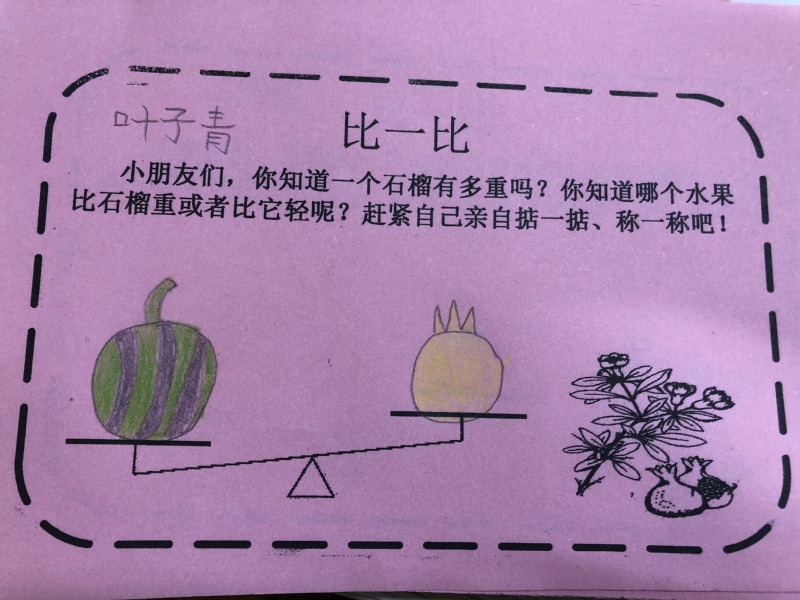 叶子青
比一比
小朋友们，你知道一个石榴有多重吗？你知道哪个水果
比石榴重或者比它轻呢？赶紧自己亲自掂一掂、称一称吧！